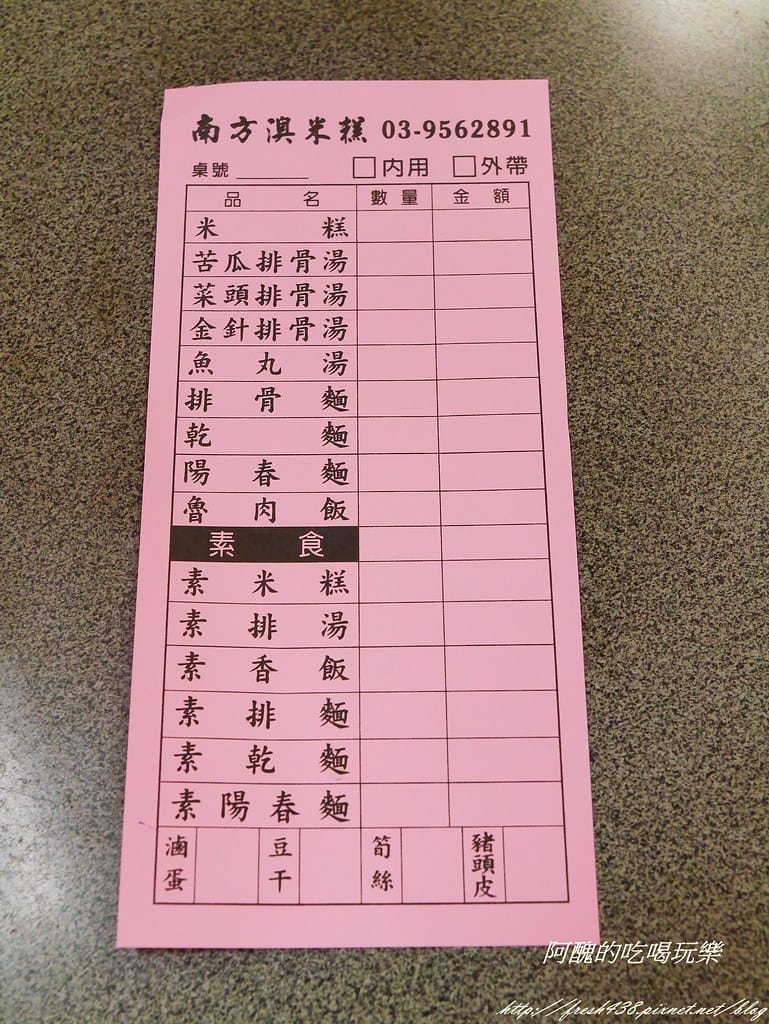 南方澳米糕 03-9562891
桌號______ □內用 □外帶
品名 數量 金額
米糕
苦瓜排骨湯
菜頭排骨湯
金針排骨湯
魚丸湯
排骨麵
乾麵
陽春麵
魯肉飯
素食
素米糕
素排湯
素香飯
素排麵
素乾麵
素陽春麵
滷蛋 豆干 筍絲 豬頭皮
阿醜的吃喝玩樂
http://fresh438.pixnet.net/blog